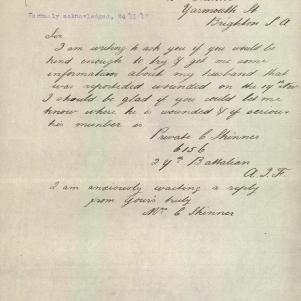 Yarmouth St
Brighton S.A
Formally acknowledged,
Sir
I am writing to ask you if you would be
kind enough to try & get me some
information about my husband that
was reported wounded on the 19th Nov
I should be glad if you could let me
know where he is wounded & if serious
his number is
Private C Skinner
6156
27th Battalian
A.I.F.
I am anxiously waiting a reply
from Yours truly
Mrs C Skinner